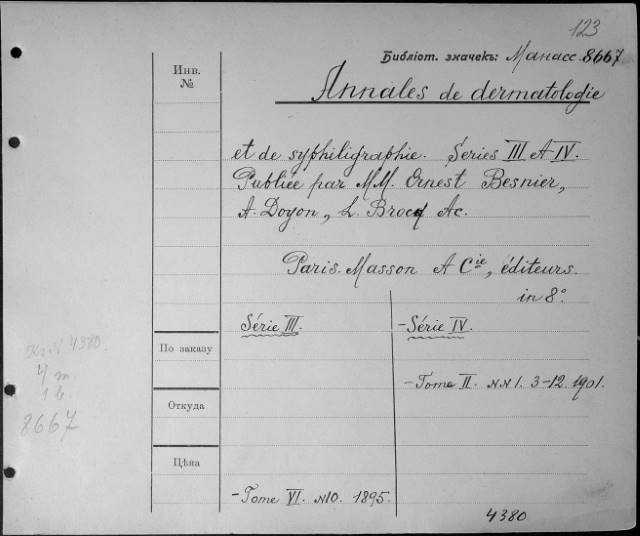 123
Библіот. значекъ: Манасс. 8667
Инв.
№
Annales de dermatologie
et de syphiligraphie. Series III & IV.
Publiée par MM. Ernest Besnier,
A. Doyon, L. Brocq &c.
Paris. Masson & Cie, éditeurs.
in 8°
Série III.
- Série IV.
По заказу
- Tome II. NN 1. 3-12. 1901.
Откуда
Цѣна
- Tome VI. N10. 1895.
4380
4380.
4 т.
1 в.
8667